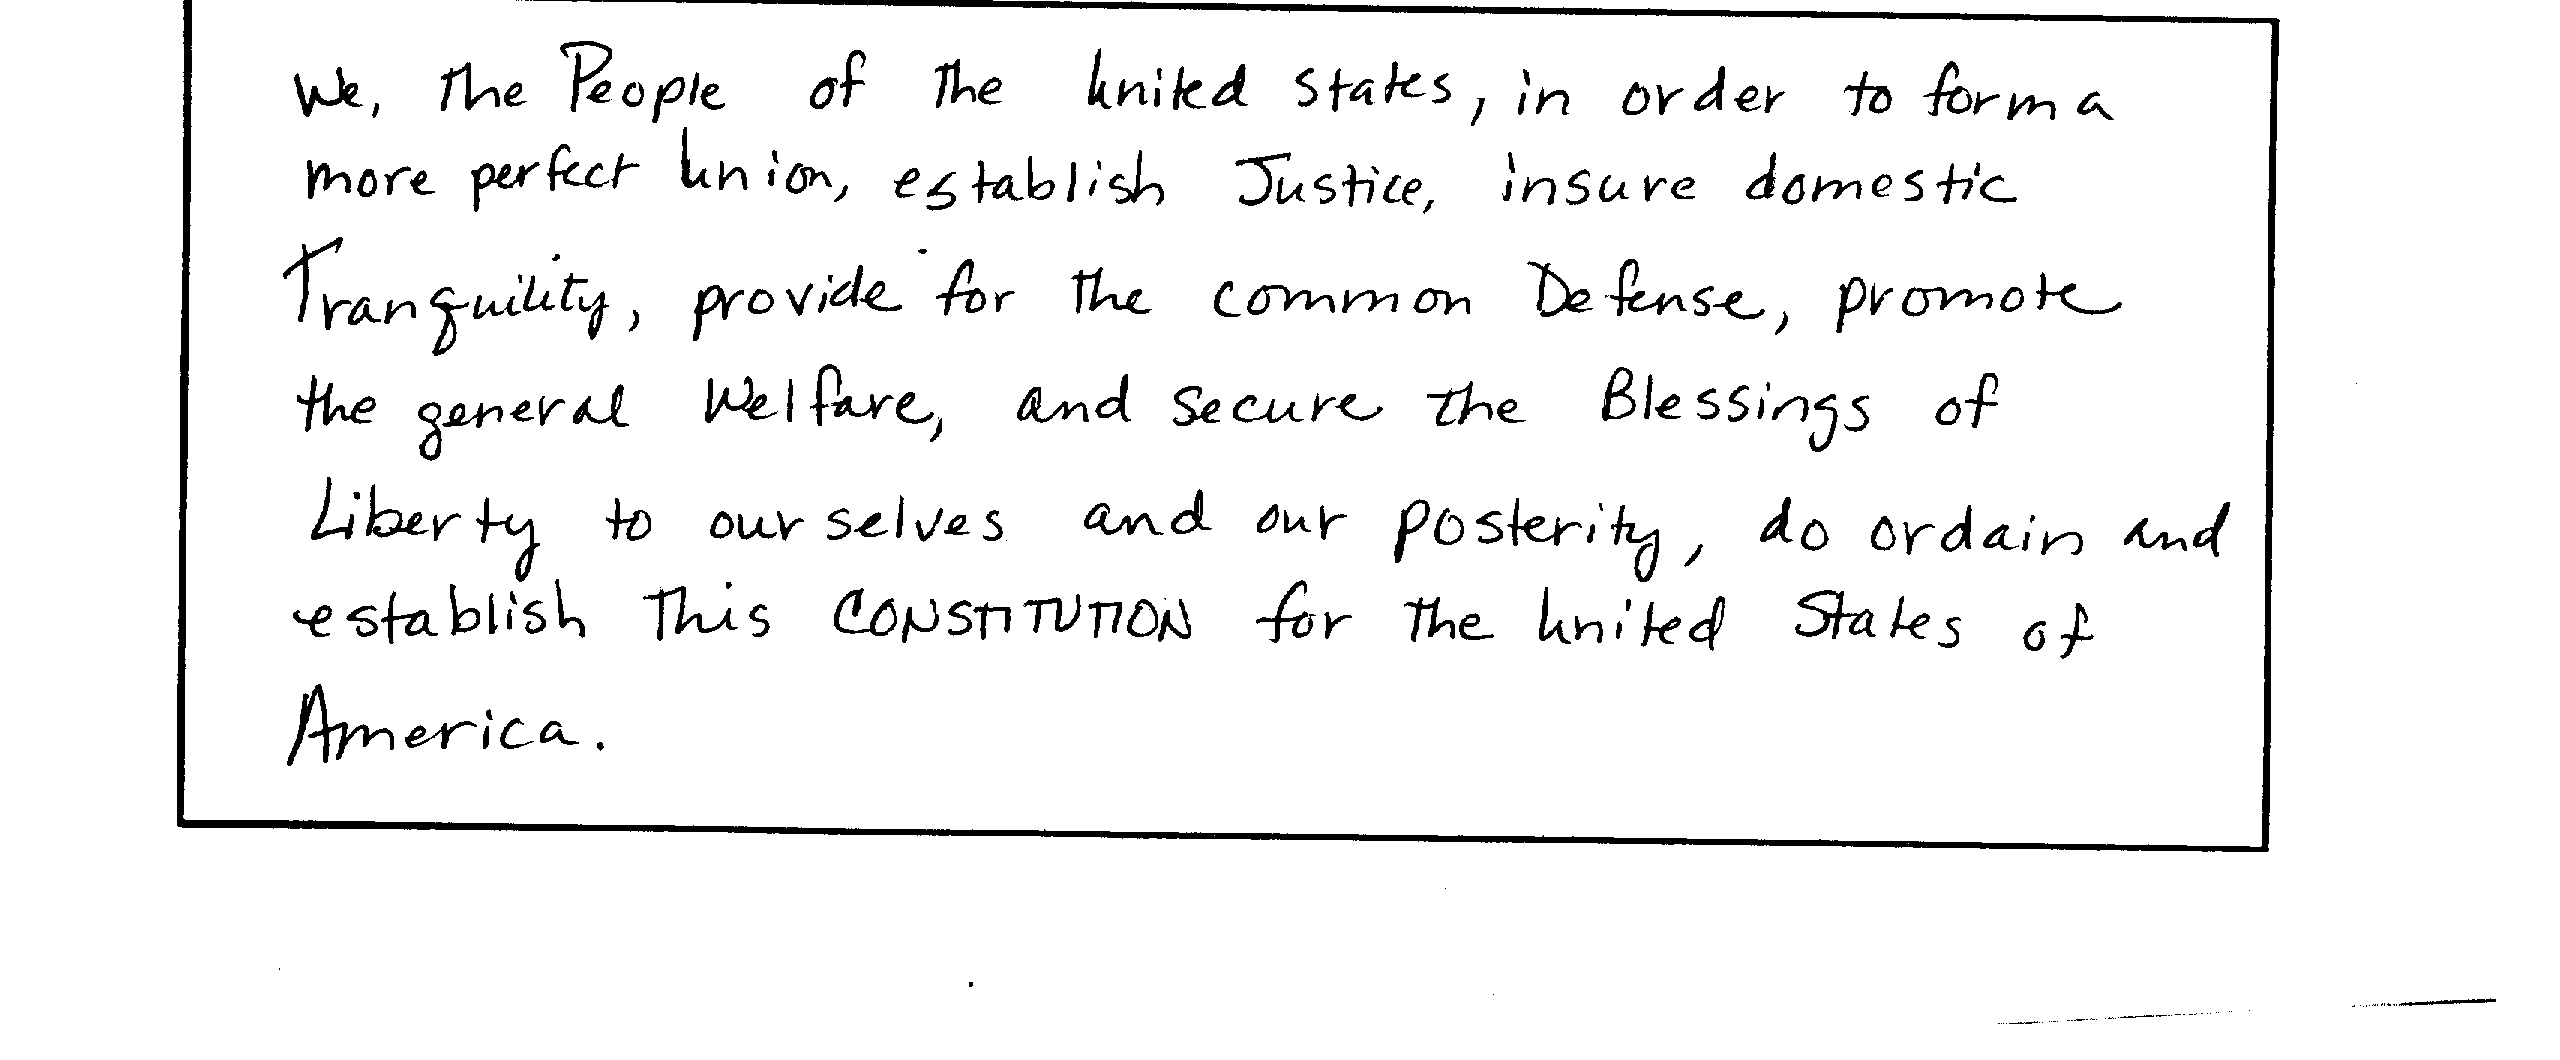 We, the People of the United States, in order to form a
more perfect Union, establish Justice, insure domestic
Tranquility, provide for the common Defense, promote
the general Welfare, and secure the Blessings of
Liberty to ourselves and our posterity, do ordain and
establish this CONSTITUTION for the United States of
America.